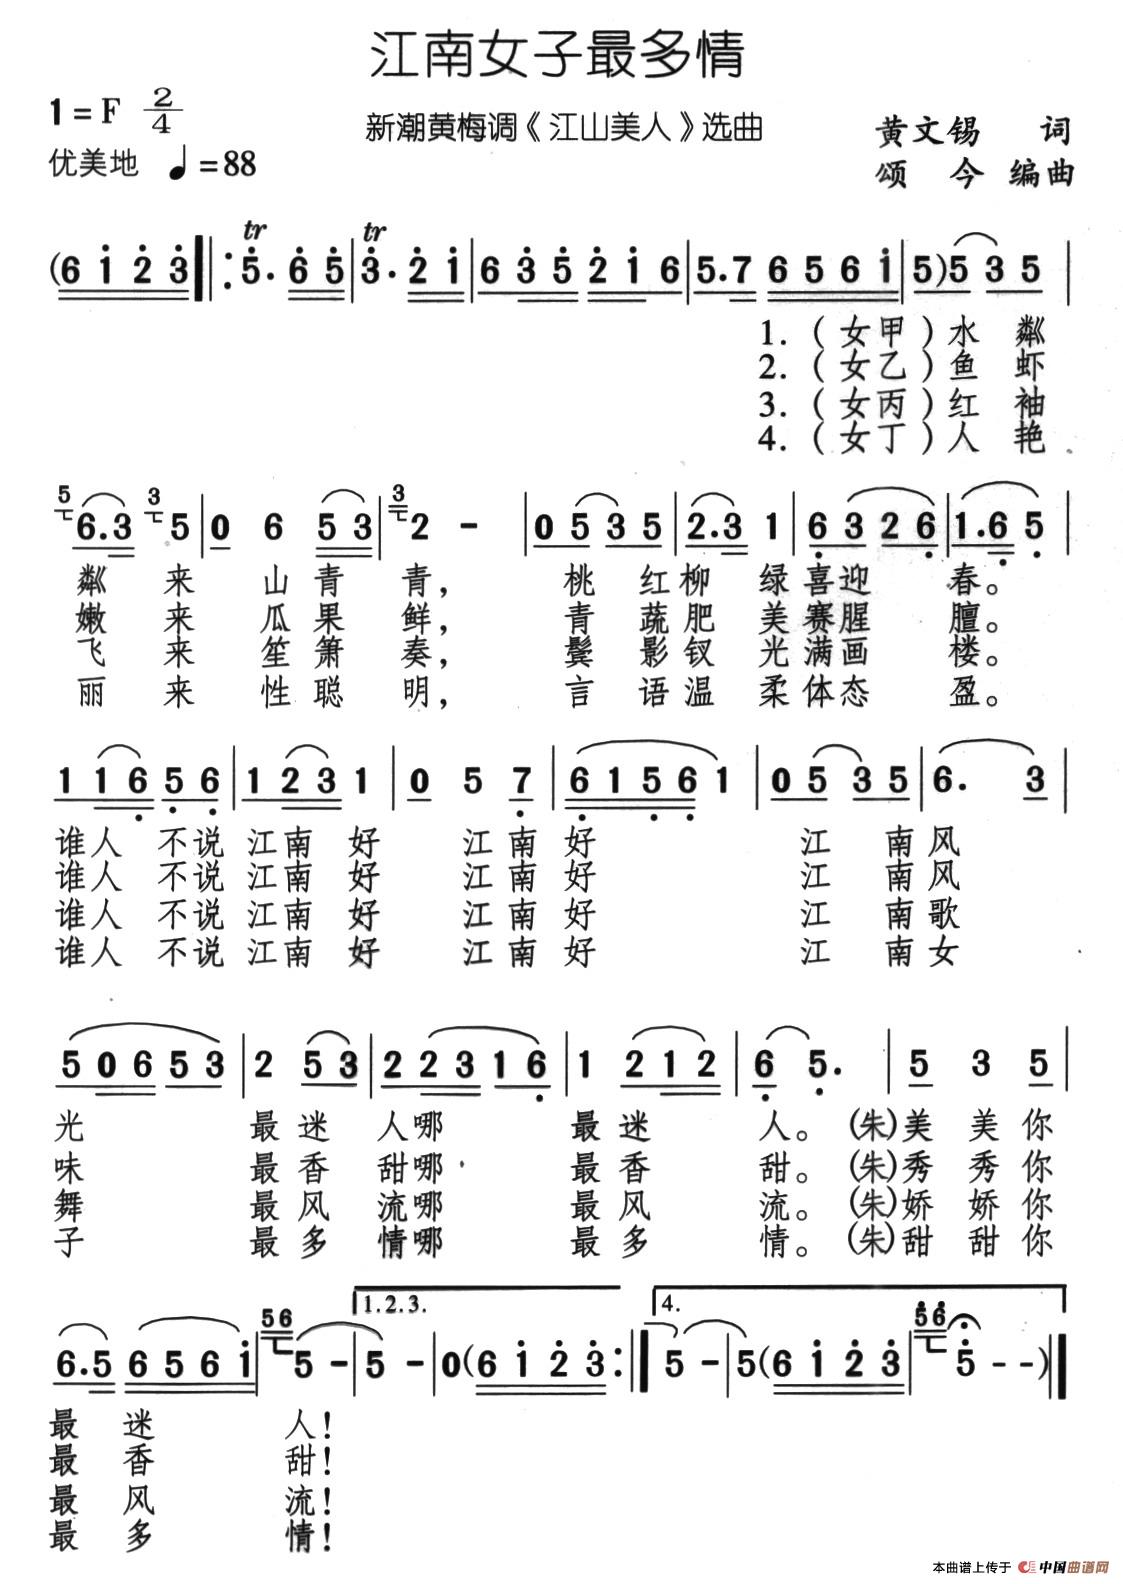 江南女子最多情
1=F 2/4
新潮黄梅调《江山美人》选曲
黄文锡 词
优美地 ♩=88
颂今 编曲
tr tr
(6 1 2 3 5. 6 5 3. 2 1 6 3 5 2 1 6 5.7 6 5 6 1 5)5 3 5
1.(女甲)水粼
2.(女乙)鱼虾
3.(女丙)红袖
4.(女丁)人艳
5 3 3
6.3 5 0 6 5 3 2 - 0 5 3 5 2.3 1 6 3 2 6 1.6 5
粼来山青青，桃红柳绿喜迎春。
嫩来瓜果鲜，青蔬肥美赛腥膻。
飞来笙箫奏，鬓影钗光满画楼。
丽来性聪明，言语温柔体态盈。
1 1 6 5 6 1 2 3 1 0 5 7 6 1 5 6 1 0 5 3 5 6. 3
谁人不说江南好江南好江南风
谁人不说江南好江南好江南风
谁人不说江南好江南好江南歌
谁人不说江南好江南好江南女
5 0 6 5 3 2 5 3 2 2 3 1 6 1 2 1 2 6 5. 5 3 5
光最迷人哪最迷人。(朱)美美你
味最香甜哪最香甜。(朱)秀秀你
舞最风流哪最风流。(朱)娇娇你
子最多情哪最多情。(朱)甜甜你
1.2.3. 4.
56 56
6.5 6 5 6 1 5 - 5 - 0(6 1 2 3 5 - 5(6 1 2 3 5 - -)
最迷人！
最香甜！
最风流！
最多情！
本曲谱上传于 中国曲谱网